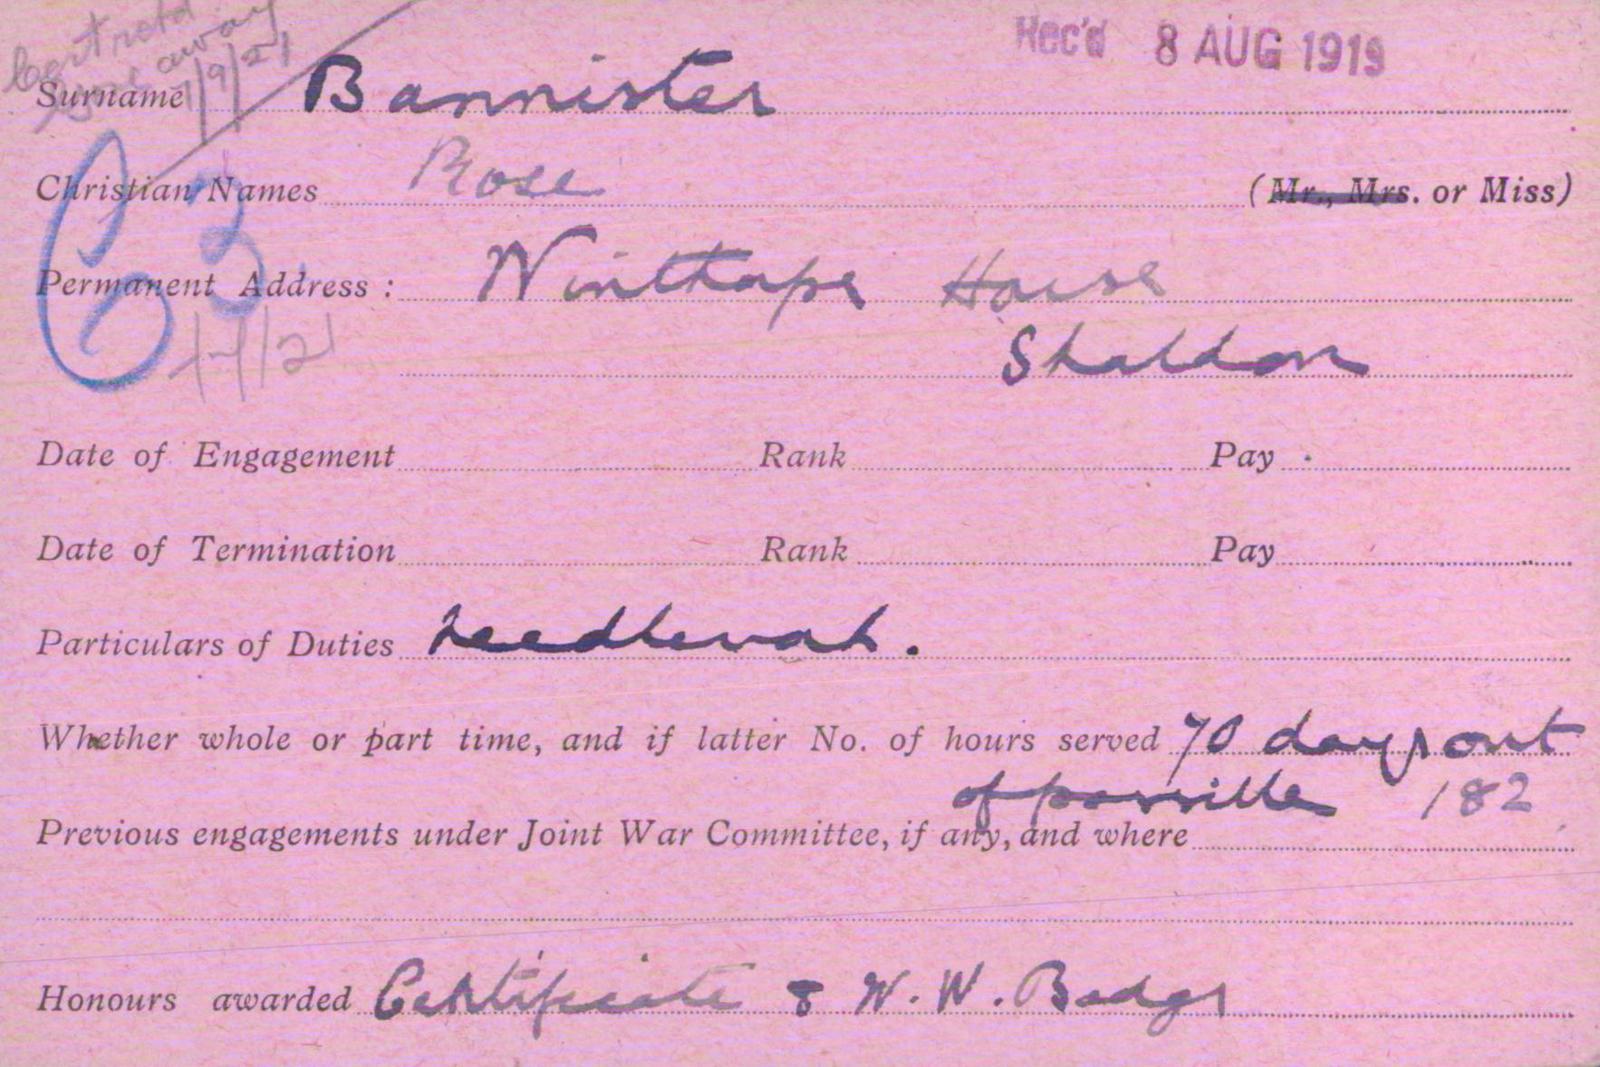 Cert retd
gone away
7/9/21
Rec'd 8 AUG 1919
Surname Bannister
Christian Names Rose (Mr., Mrs. or Miss)
Permanent Address : Winthorpe House
Shaldon
Date of Engagement Rank Pay
Date of Termination Rank Pay
Particulars of Duties Needlework.
Whether whole or part time, and if latter No. of hours served 70 days out
of possible 182
Previous engagements under Joint War Committee, if any, and where
Honours awarded Certificate & W.W. Badge